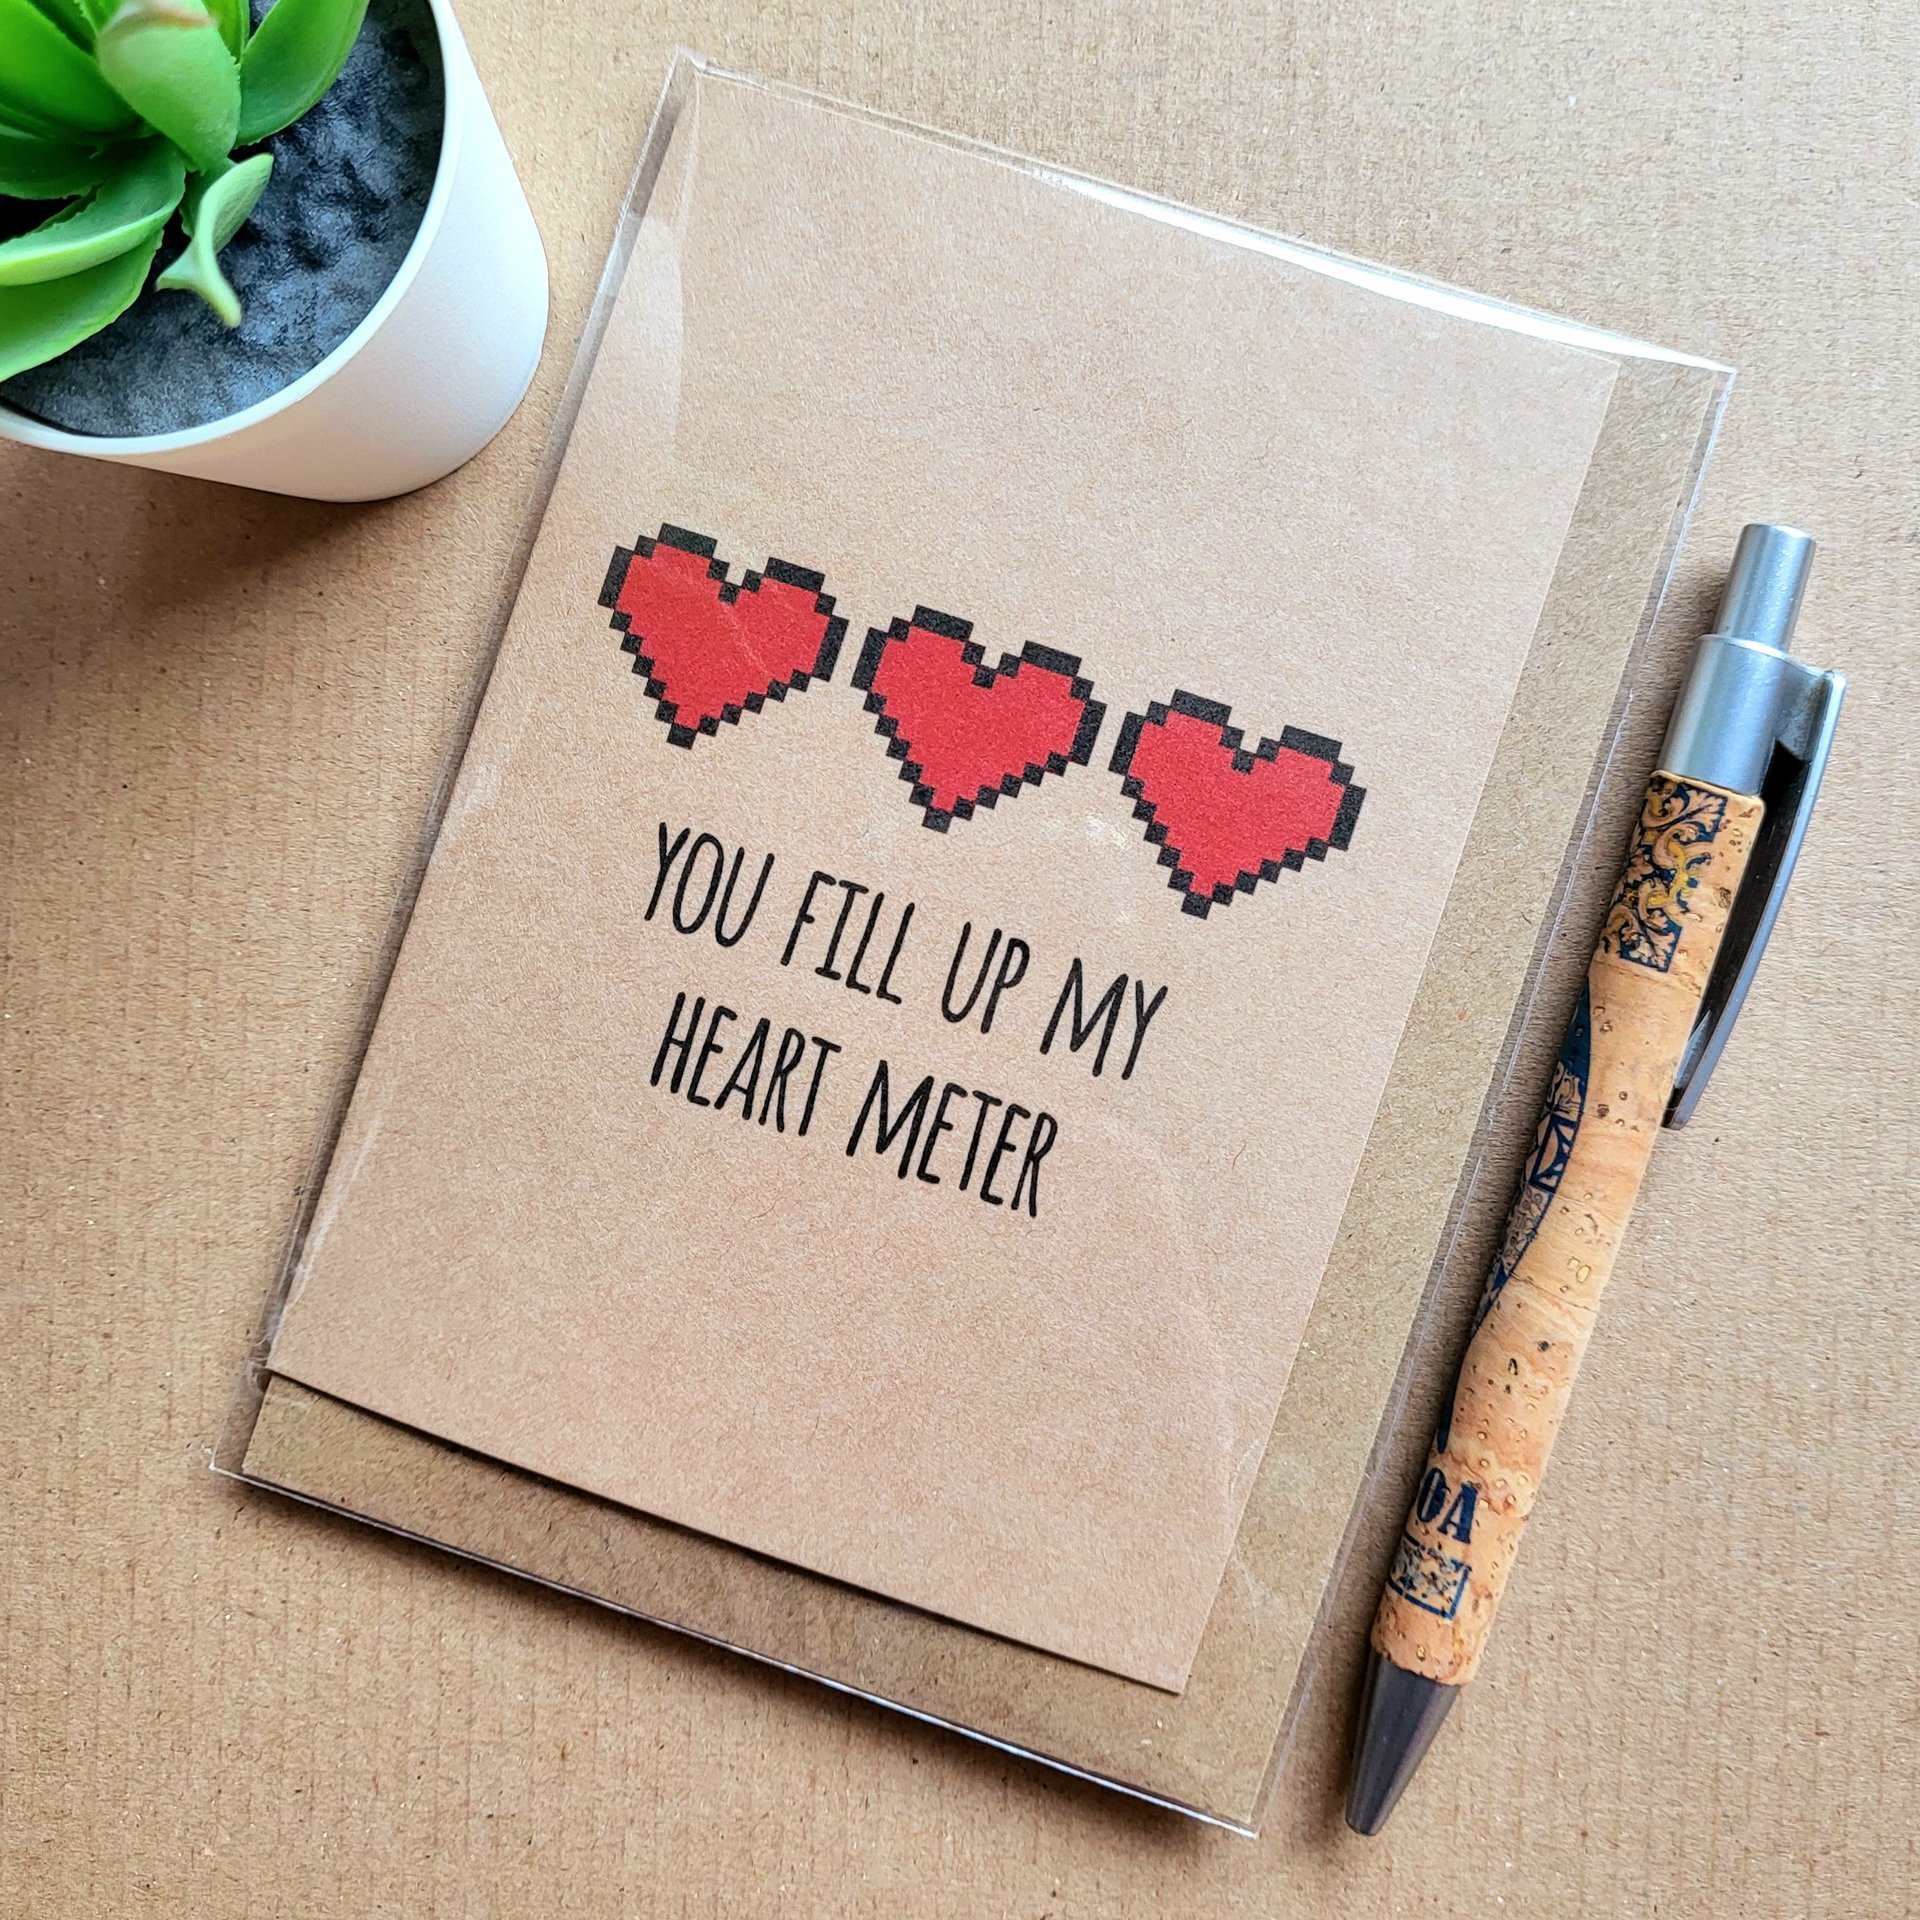 YOU FILL UP MY
HEART METER
OA